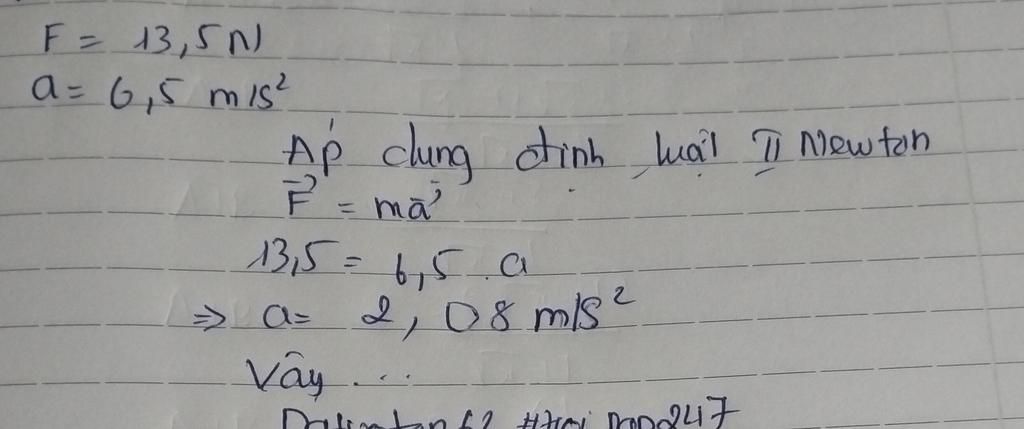 F = 13,5 N
a = 6,5 m/s²
Áp dụng định luật II Newton
F⃗ = ma⃗
13,5 = 6,5 . a
⇒ a = 2,08 m/s²
Vậy ...